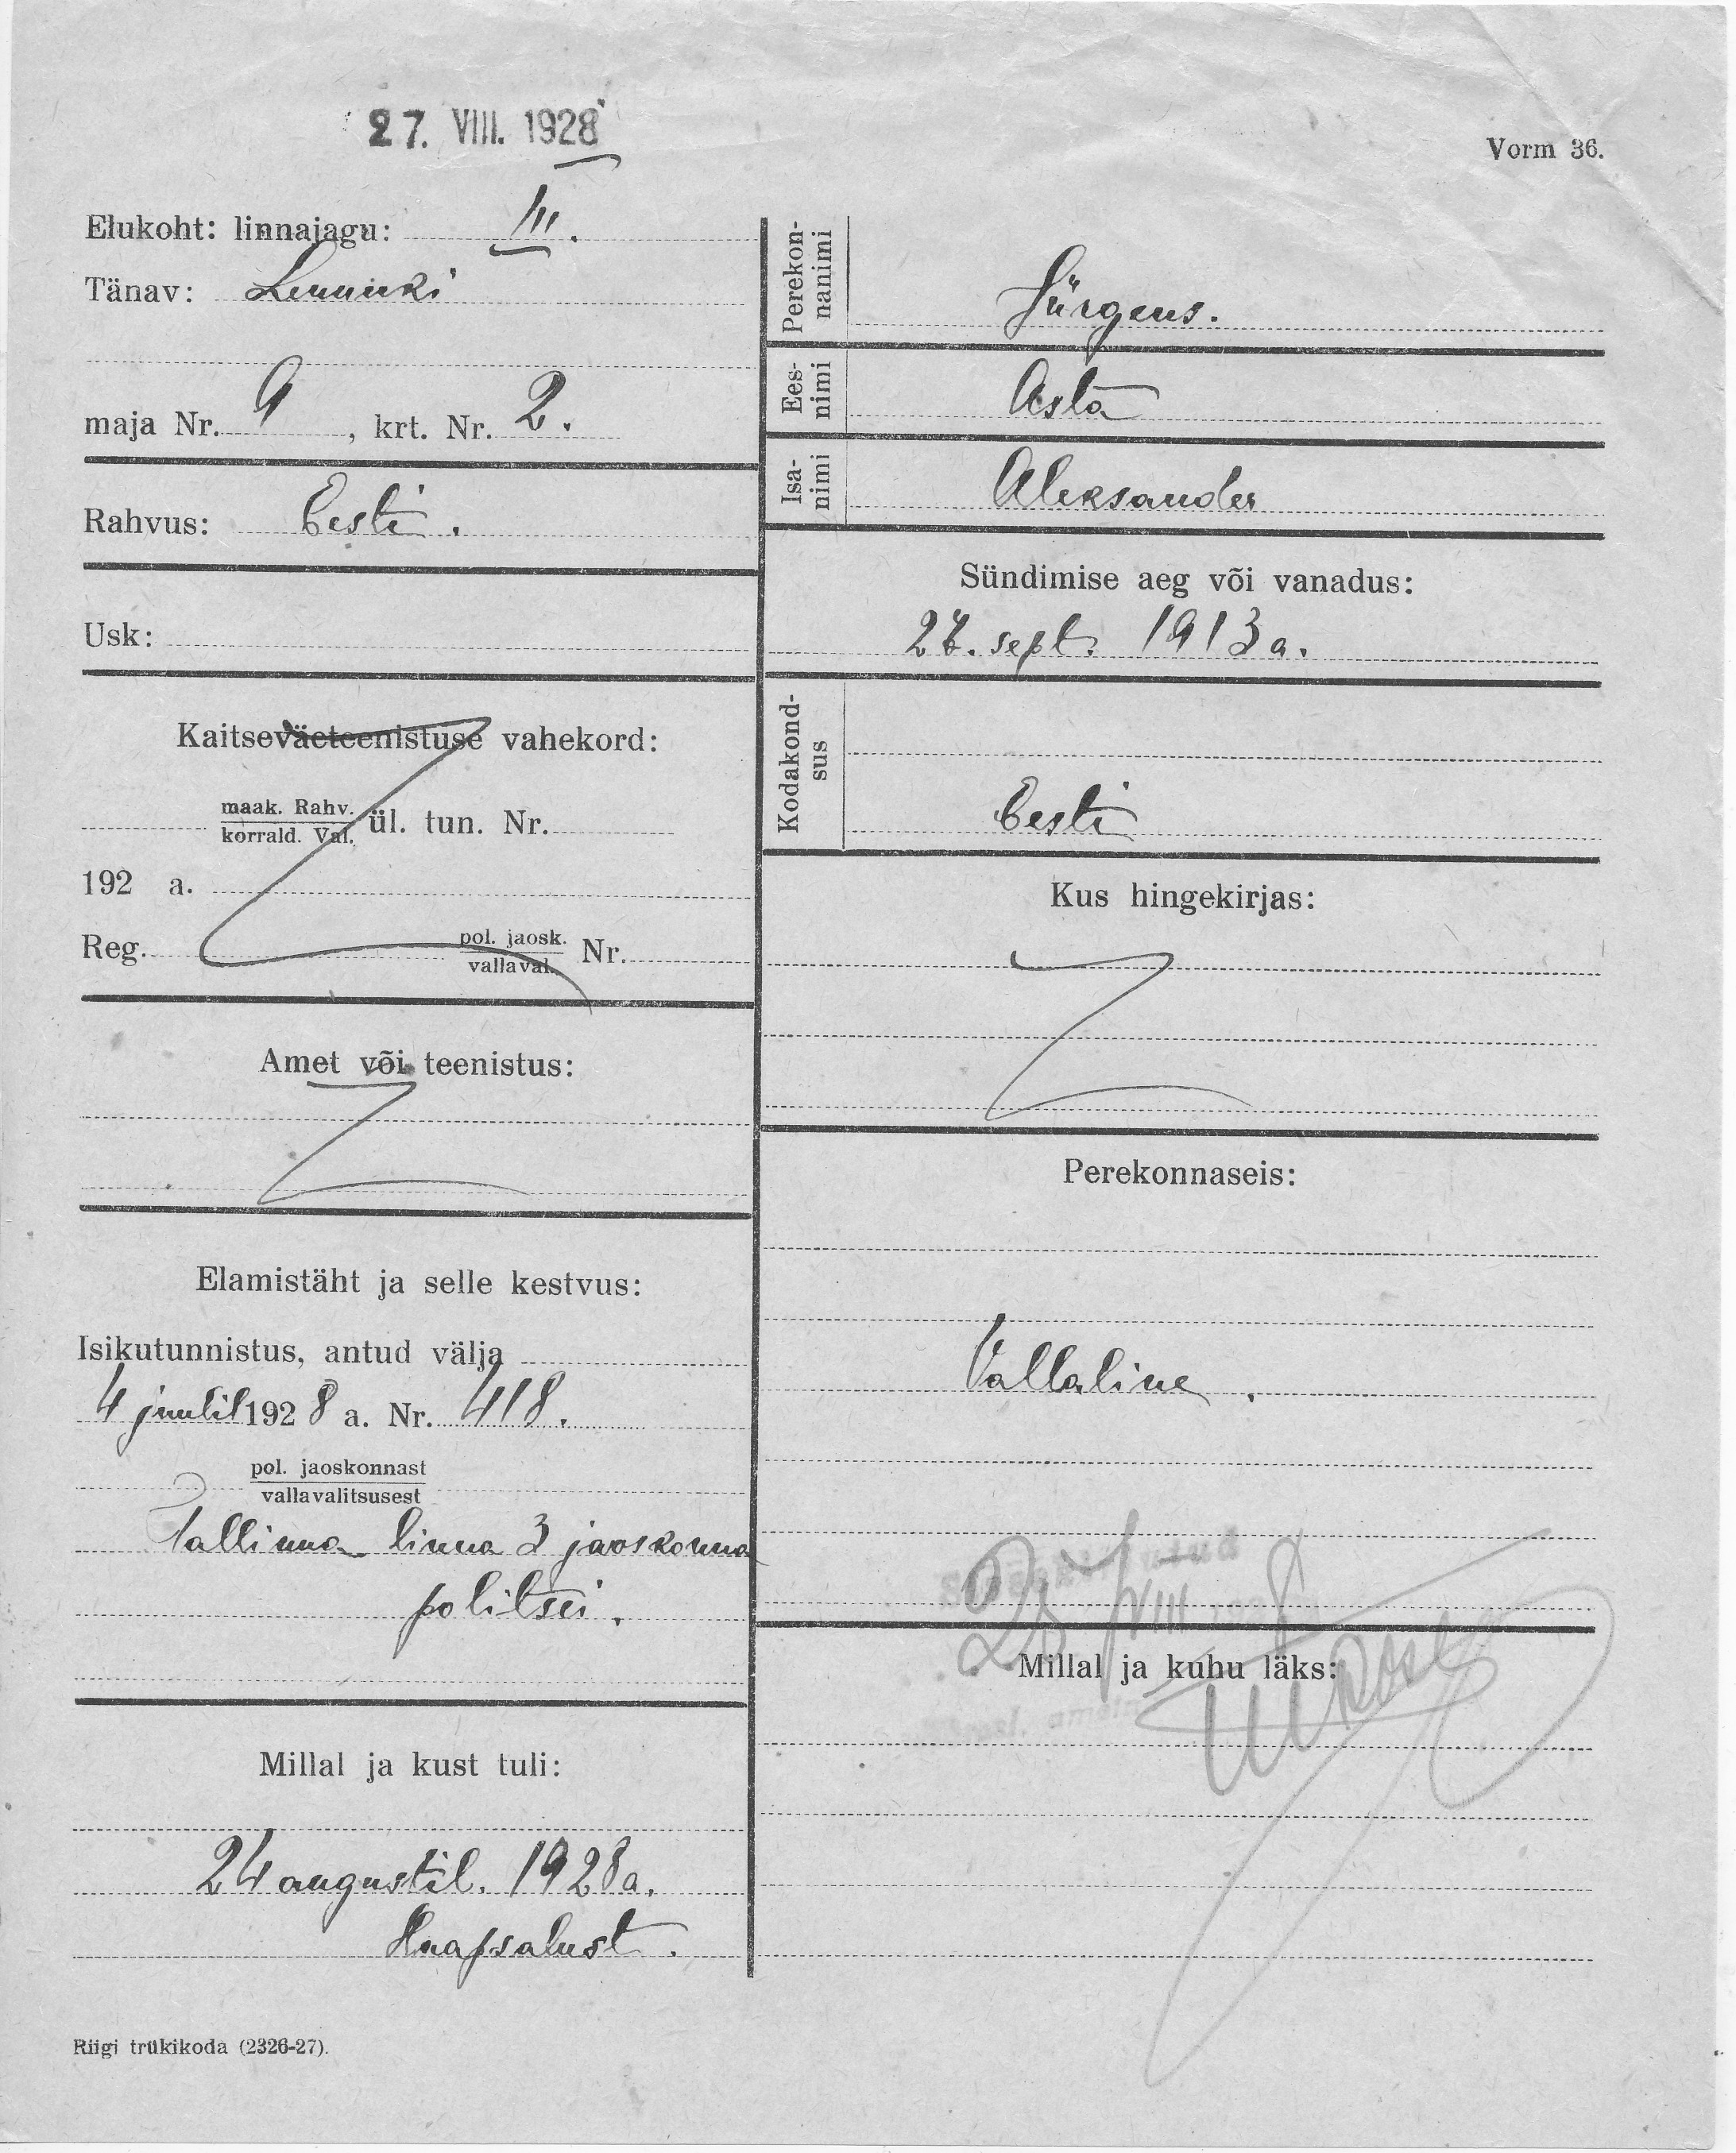 27. VIII. 1928
Vorm 36.
Elukoht: linnajagu: III.
Tänav:
maja Nr. 9, krt. Nr. 2.
Rahvus: Eesti.
Usk:
Kaitseväeteenistuse vahekord:
maak. Rahv.
korrald. Val. ül. tun. Nr.
192 a.
Reg. pol. jaosk.
vallaval. Nr.
Amet või teenistus:
Elamistäht ja selle kestvus:
Isikutunnistus, antud välja
4 juulil 1928 a. Nr. 418.
pol. jaoskonnast
vallavalitsusest
Tallinna linna 3 jaoskonna
politsei.
Millal ja kust tuli:
24 augustil. 1928 a.
Haapsalust.
Riigi trükikoda (2326-27).
Perekon-
nanimi
Jürgens.
Ees-
nimi
Asta
Isa-
nimi
Aleksander
Sündimise aeg või vanadus:
sept. 1913 a.
Kodakond-
sus
Eesti
Kus hingekirjas:
Perekonnaseis:
Vallaline.
Millal ja kuhu läks: